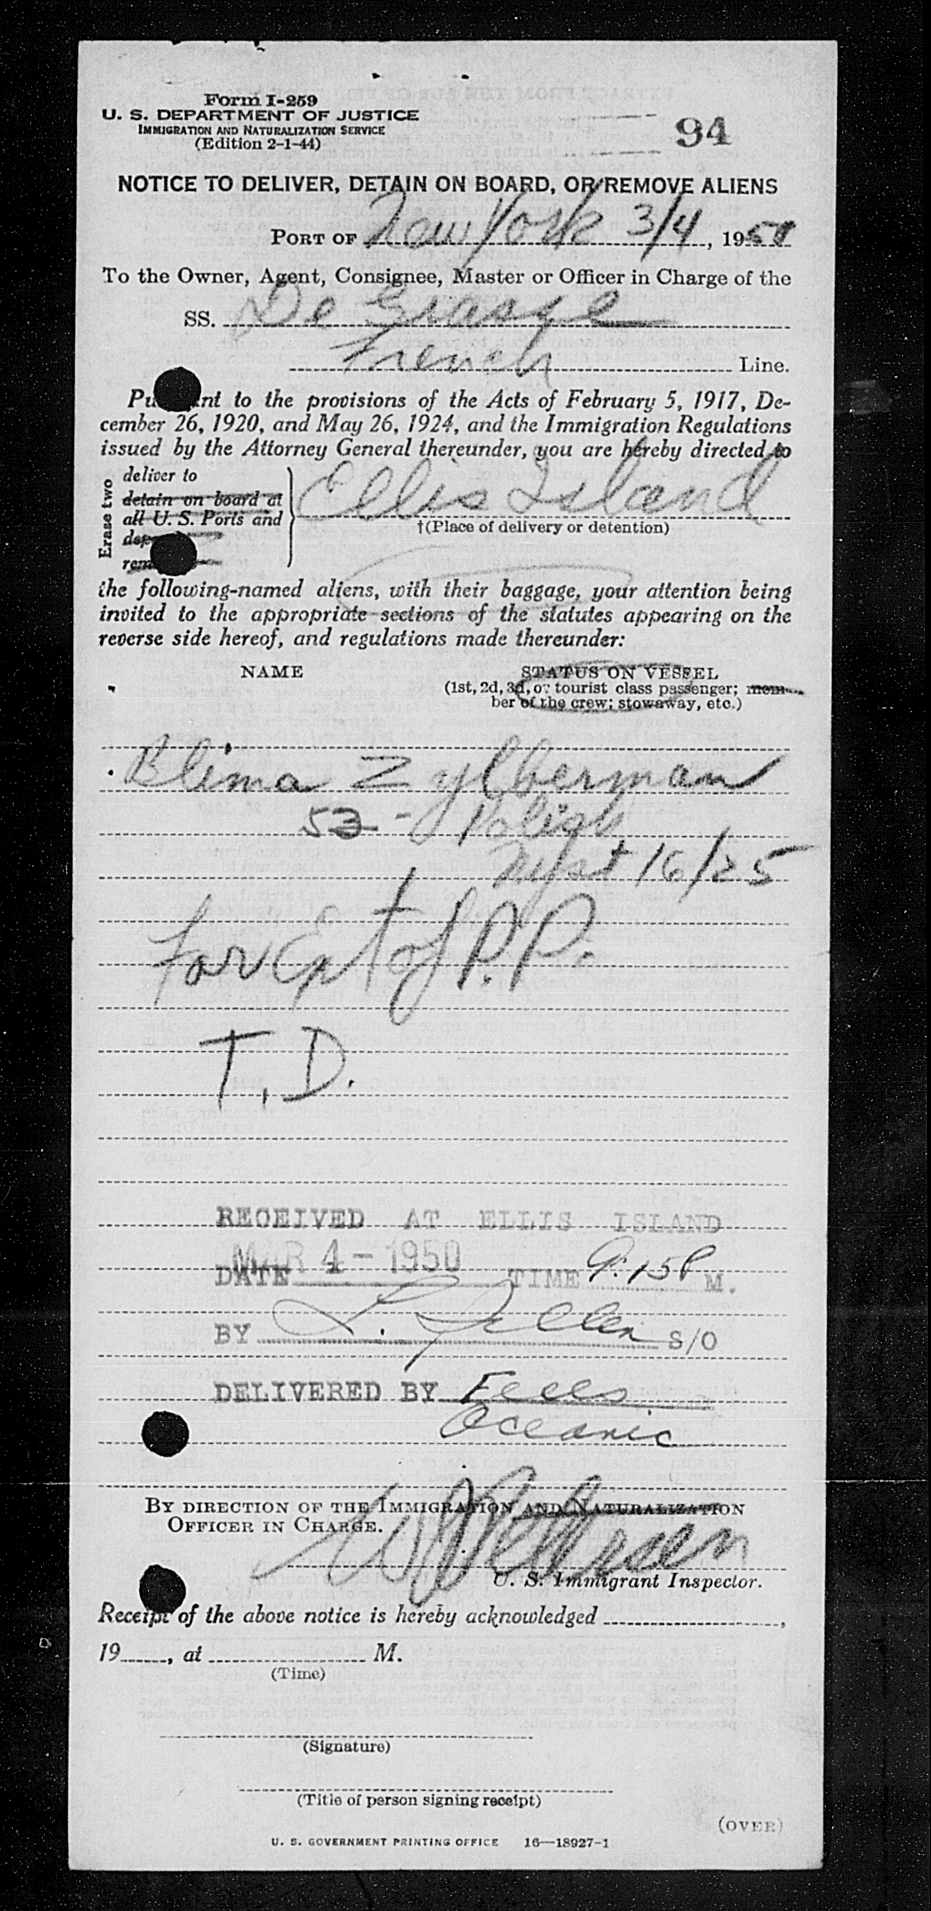 Form I-259
U. S. DEPARTMENT OF JUSTICE
IMMIGRATION AND NATURALIZATION SERVICE
(Edition 2-1-44)
94
NOTICE TO DELIVER, DETAIN ON BOARD, OR REMOVE ALIENS
PORT OF New York 3/4, 1950
To the Owner, Agent, Consignee, Master or Officer in Charge of the
SS. De Grasse
French Line.
Pu nt to the provisions of the Acts of February 5, 1917, De-
cember 26, 1920, and May 26, 1924, and the Immigration Regulations
issued by the Attorney General thereunder, you are hereby directed to
Erase two
deliver to
detain on board at
all U. S. Ports and
dep
rem
Ellis Island
†(Place of delivery or detention)
the following-named aliens, with their baggage, your attention being
invited to the appropriate sections of the statutes appearing on the
reverse side hereof, and regulations made thereunder:
NAME STATUS ON VESSEL
(1st, 2d, 3d, or tourist class passenger; mem-
ber of the crew; stowaway, etc.)
Blima Zylberman
53 - Polish
16/25
For Ext of P.P.
T.D.
RECEIVED AT ELLIS ISLAND
MAR 4 - 1950
DATE TIME 9:15P M.
BY L. S/O
DELIVERED BY
Oceanic
BY DIRECTION OF THE IMMIGRATION AND NATURALIZATION
OFFICER IN CHARGE.
W Petersen
U. S. Immigrant Inspector.
Receipt of the above notice is hereby acknowledged ,
19 , at M.
(Time)
(Signature)
(Title of person signing receipt)
(OVER)
U. S. GOVERNMENT PRINTING OFFICE 16—18927-1